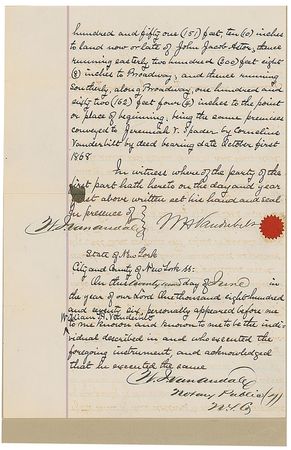 hundred and fifty one (151) feet, ten (10) inches
to land now or late of John Jacob Astor, thence
running easterly two hundred (200) feet eight
(8) inches to Broadway; and thence running
Southerly, along Broadway, one hundred and
eighty two (162) feet four (4) inches to the point
or place of beginning, being the same premises
conveyed to Jeremiah V. Spader by Cornelius
Vanderbilt by deed bearing date October first
1868
In witness where of the party of the
first part hath hereto on the day and year
first above written set his hand and seal
In presence of
W H Vanderbilt
State of New York
City and County of New York ss:
On this twenty day of June in
the year of our Lord One thousand eight hundred
and seventy six, personally appeared before me
William H. Vanderbilt
to me known and known to me to be the indi-
vidual described in and who executed the
foregoing instrument, and acknowledged
that he executed the same
Notary Public
N.Y. Co